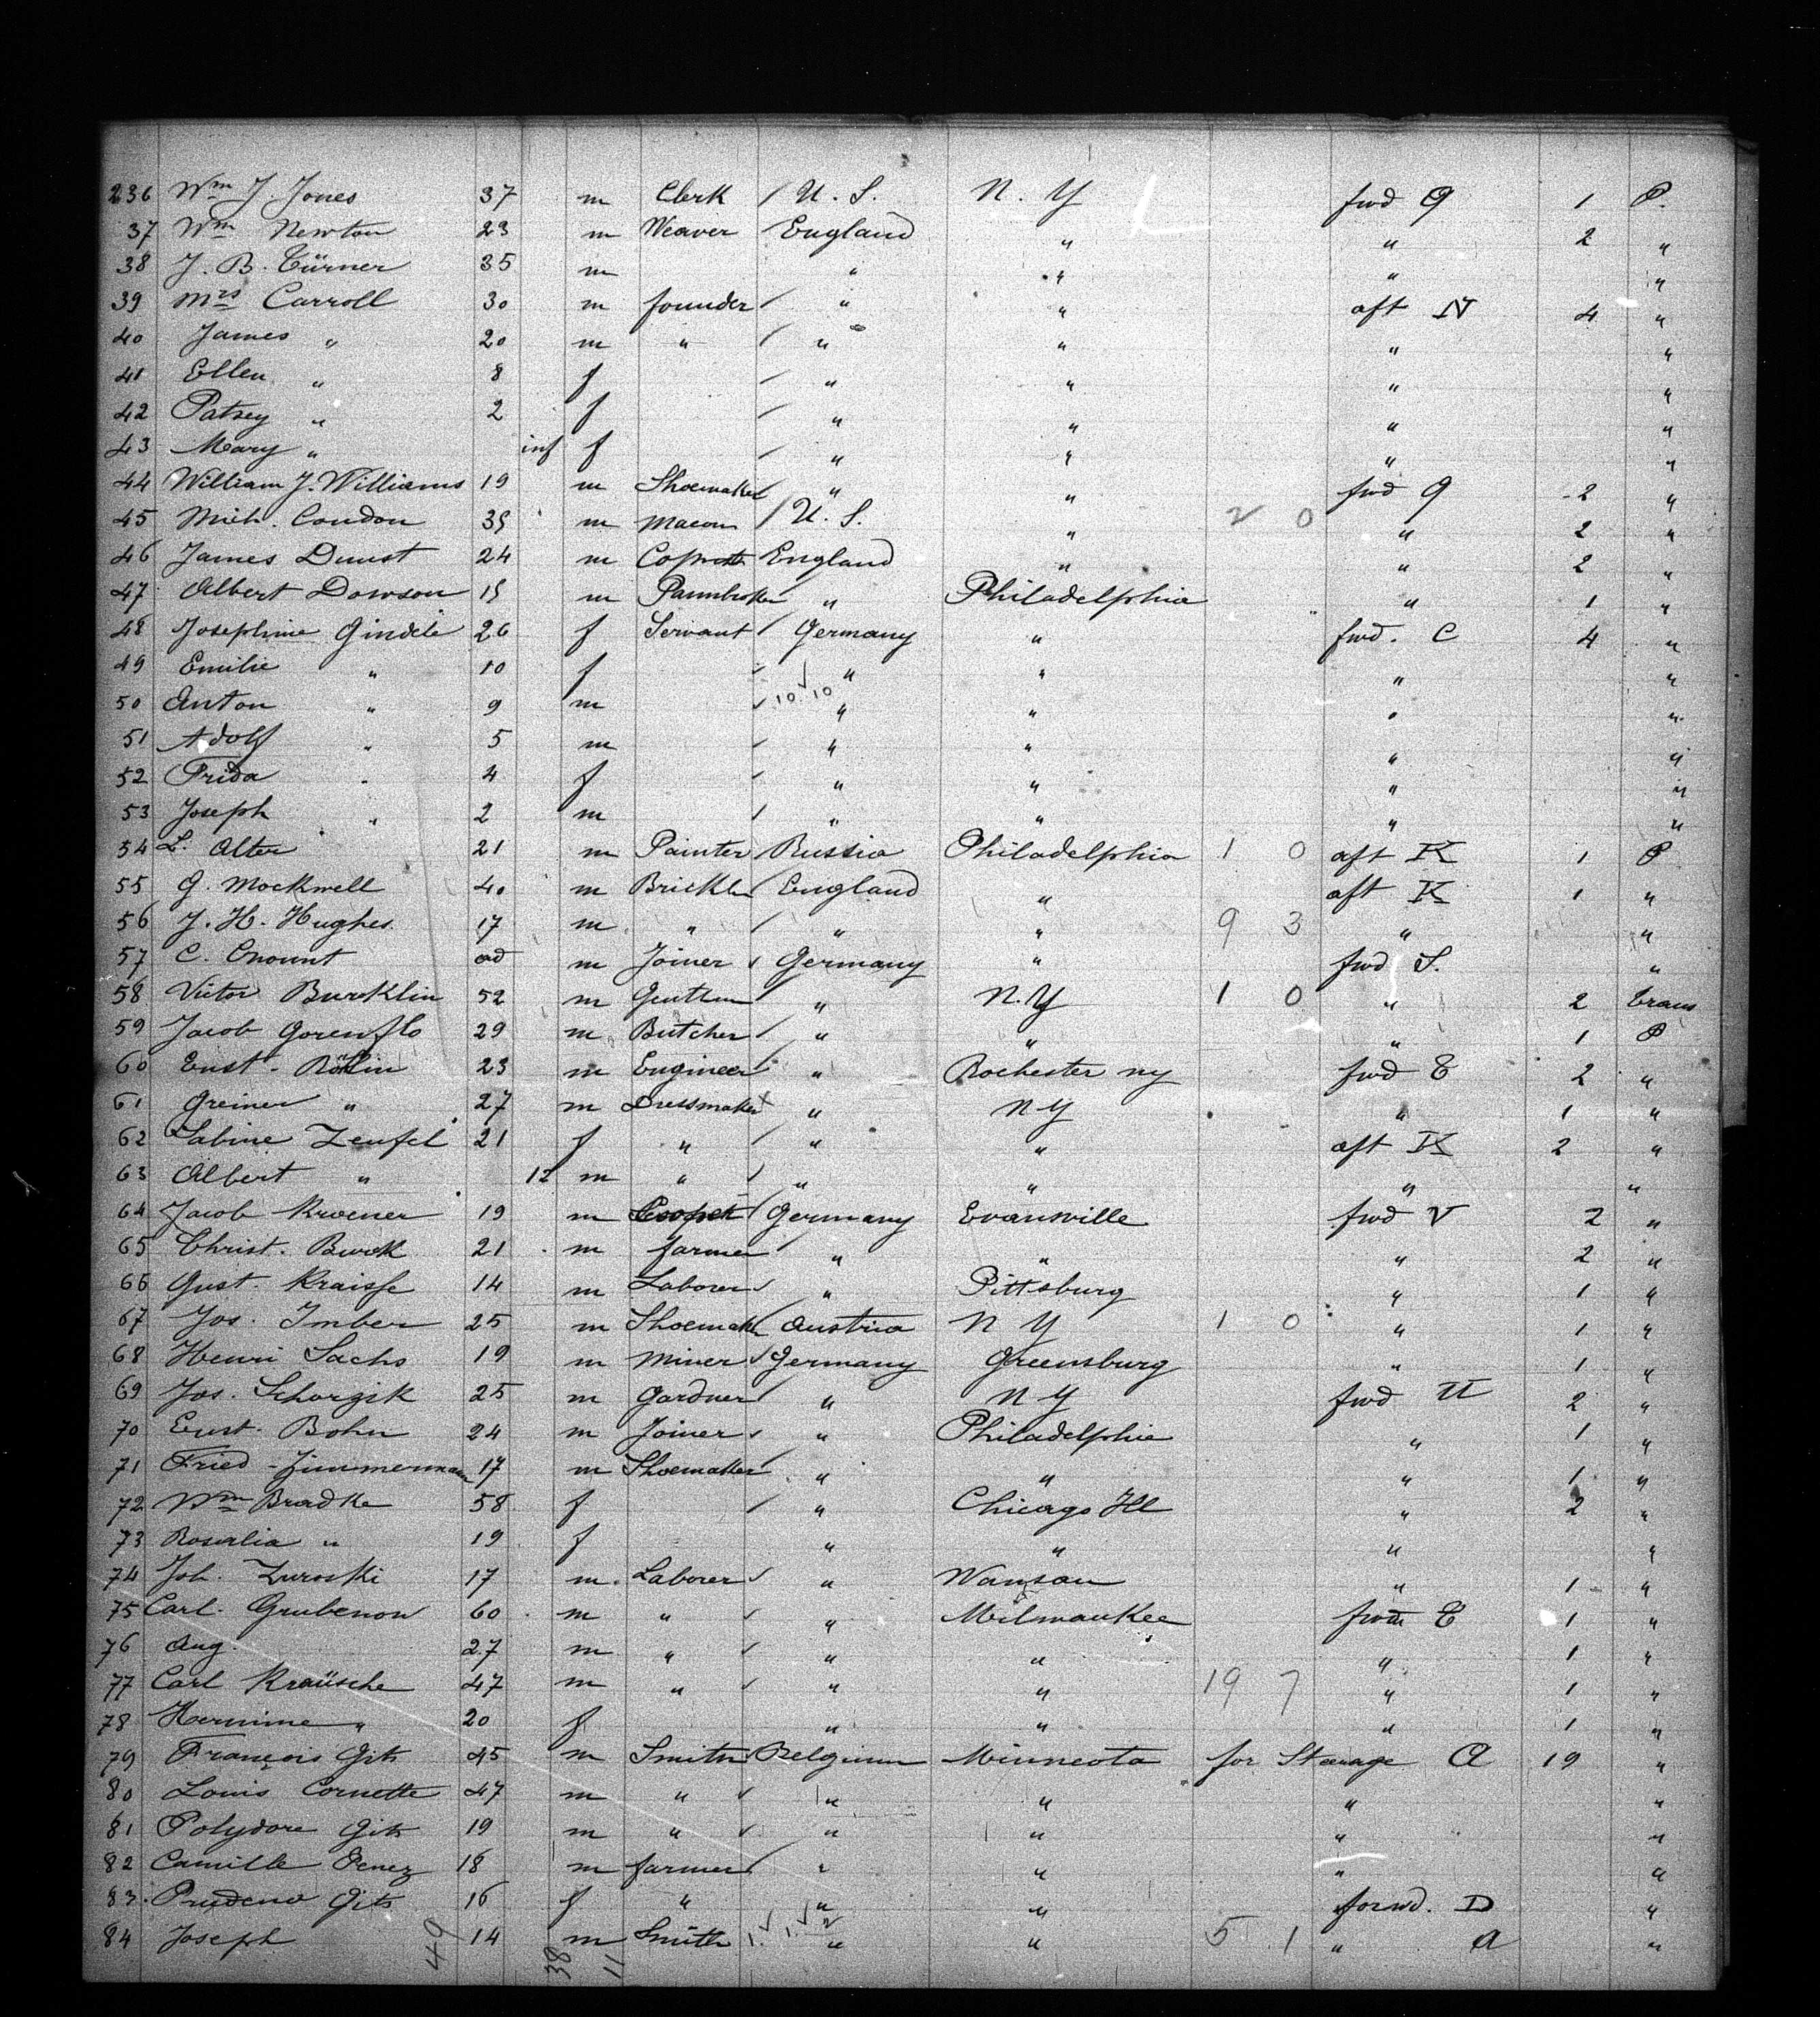 236 Wm J Jones 37 m Clerk / U. S. N. Y fwd G 1 P.
37 Wm Newton 23 m Weaver England " " 2 "
38 J. B. Türner 35 m " " " "
39 Mrs Carroll 30 m founder / " " aft N 4 "
40 James " 20 m " / " " " "
41 Ellen " 8 f / " " " "
42 Patsey " 2 f / " " " "
43 Mary " inf f / " " " "
44 William J. Williams 19 m Shoemaker " " fwd G 2 "
45 Mich. Condon 35 m Macon / U. S. " 2 0 " 2 "
46 James Dunst 24 m England " " 2 "
47 Albert Dowson 15 m Pawnbroker " Philadelphia " 1 "
48 Josephine Gindele 26 f Servant / Germany " fwd. C 4 "
49 Emilie " 10 f ✓ " " " "
50 Anton " 9 m ✓ 10 10 " " " "
51 Adolf " 5 m / " " " "
52 Frida " 4 f / " " " "
53 Joseph " 2 m / " " " "
54 L. Alter 21 m Painter / Russia Philadelphia 1 0 aft K 1 P
55 G. Mockwell 40 m Brickl / England " aft K 1 "
56 J. H. Hughes 17 m " / " " 9 3 " "
57 C. ad m Joiner ✓ Germany " fwd S. "
58 Victor Burcklin 52 m Gentlem / " N. Y 1 0 " 2 trans
59 Jacob Gorenflo 29 m Butcher / " " " 1 P
60 Enst - 23 m Engineer / " Rochester ny fwd E 2 "
61 Greiner " 27 m Dressmaker x " N Y " 1 "
62 Sabine Zeufel 21 f " / " " aft K 2 "
63 Albert " 12 m " ✓ " " " "
64 Jacob Kroener 19 m Cooper / Germany Evansville fwd V 2 "
65 Christ. Burck 21 m farmer / " " " 2 "
66 Gust. Kraisse 14 m Laborer ✓ " Pittsburg " 1 "
67 Jos. Imber 25 m Shoemaker / Austria N Y 1 0 " 1 "
68 Henri Sachs 19 m Miner ✓ Germany Greensburg " 1 "
69 Jos. Schorzik 25 m Gardner / " N Y fwd U 2 "
70 Enst. Bohn 24 m Joiner ✓ " Philadelphia " 1 "
71 Fried - Zimmermann 17 m Shoemaker / " " " 1 "
72 Wm Bradke 58 f / " Chicago Ill " 2 "
73 Rosalia " 19 f " " " "
74 Joh. Zuroski 17 m. Laborer ✓ " Wansau " 1 "
75 Carl. Grubenow 60 m " ✓ " Milwaukee fwd E 1 "
76 Aug. 27 m " ✓ " " " 1 "
77 Carl Kraüsche 47 m " ✓ " " 19 7 " 1 "
78 Hermine " 20 f " " " 1 "
79 François Gits 45 m Smith ✓ Belgium Minneota for Steerage A 19 "
80 Louis Cornette 47 m " ✓ " " " "
81 Polydore Gits 19 m " ✓ " " " "
82 Camille 18 m farmer / " " " "
83 Gits 16 f " " " forwd. D "
84 Joseph 14 m Smith " " 5 1 " A "
49 38 11